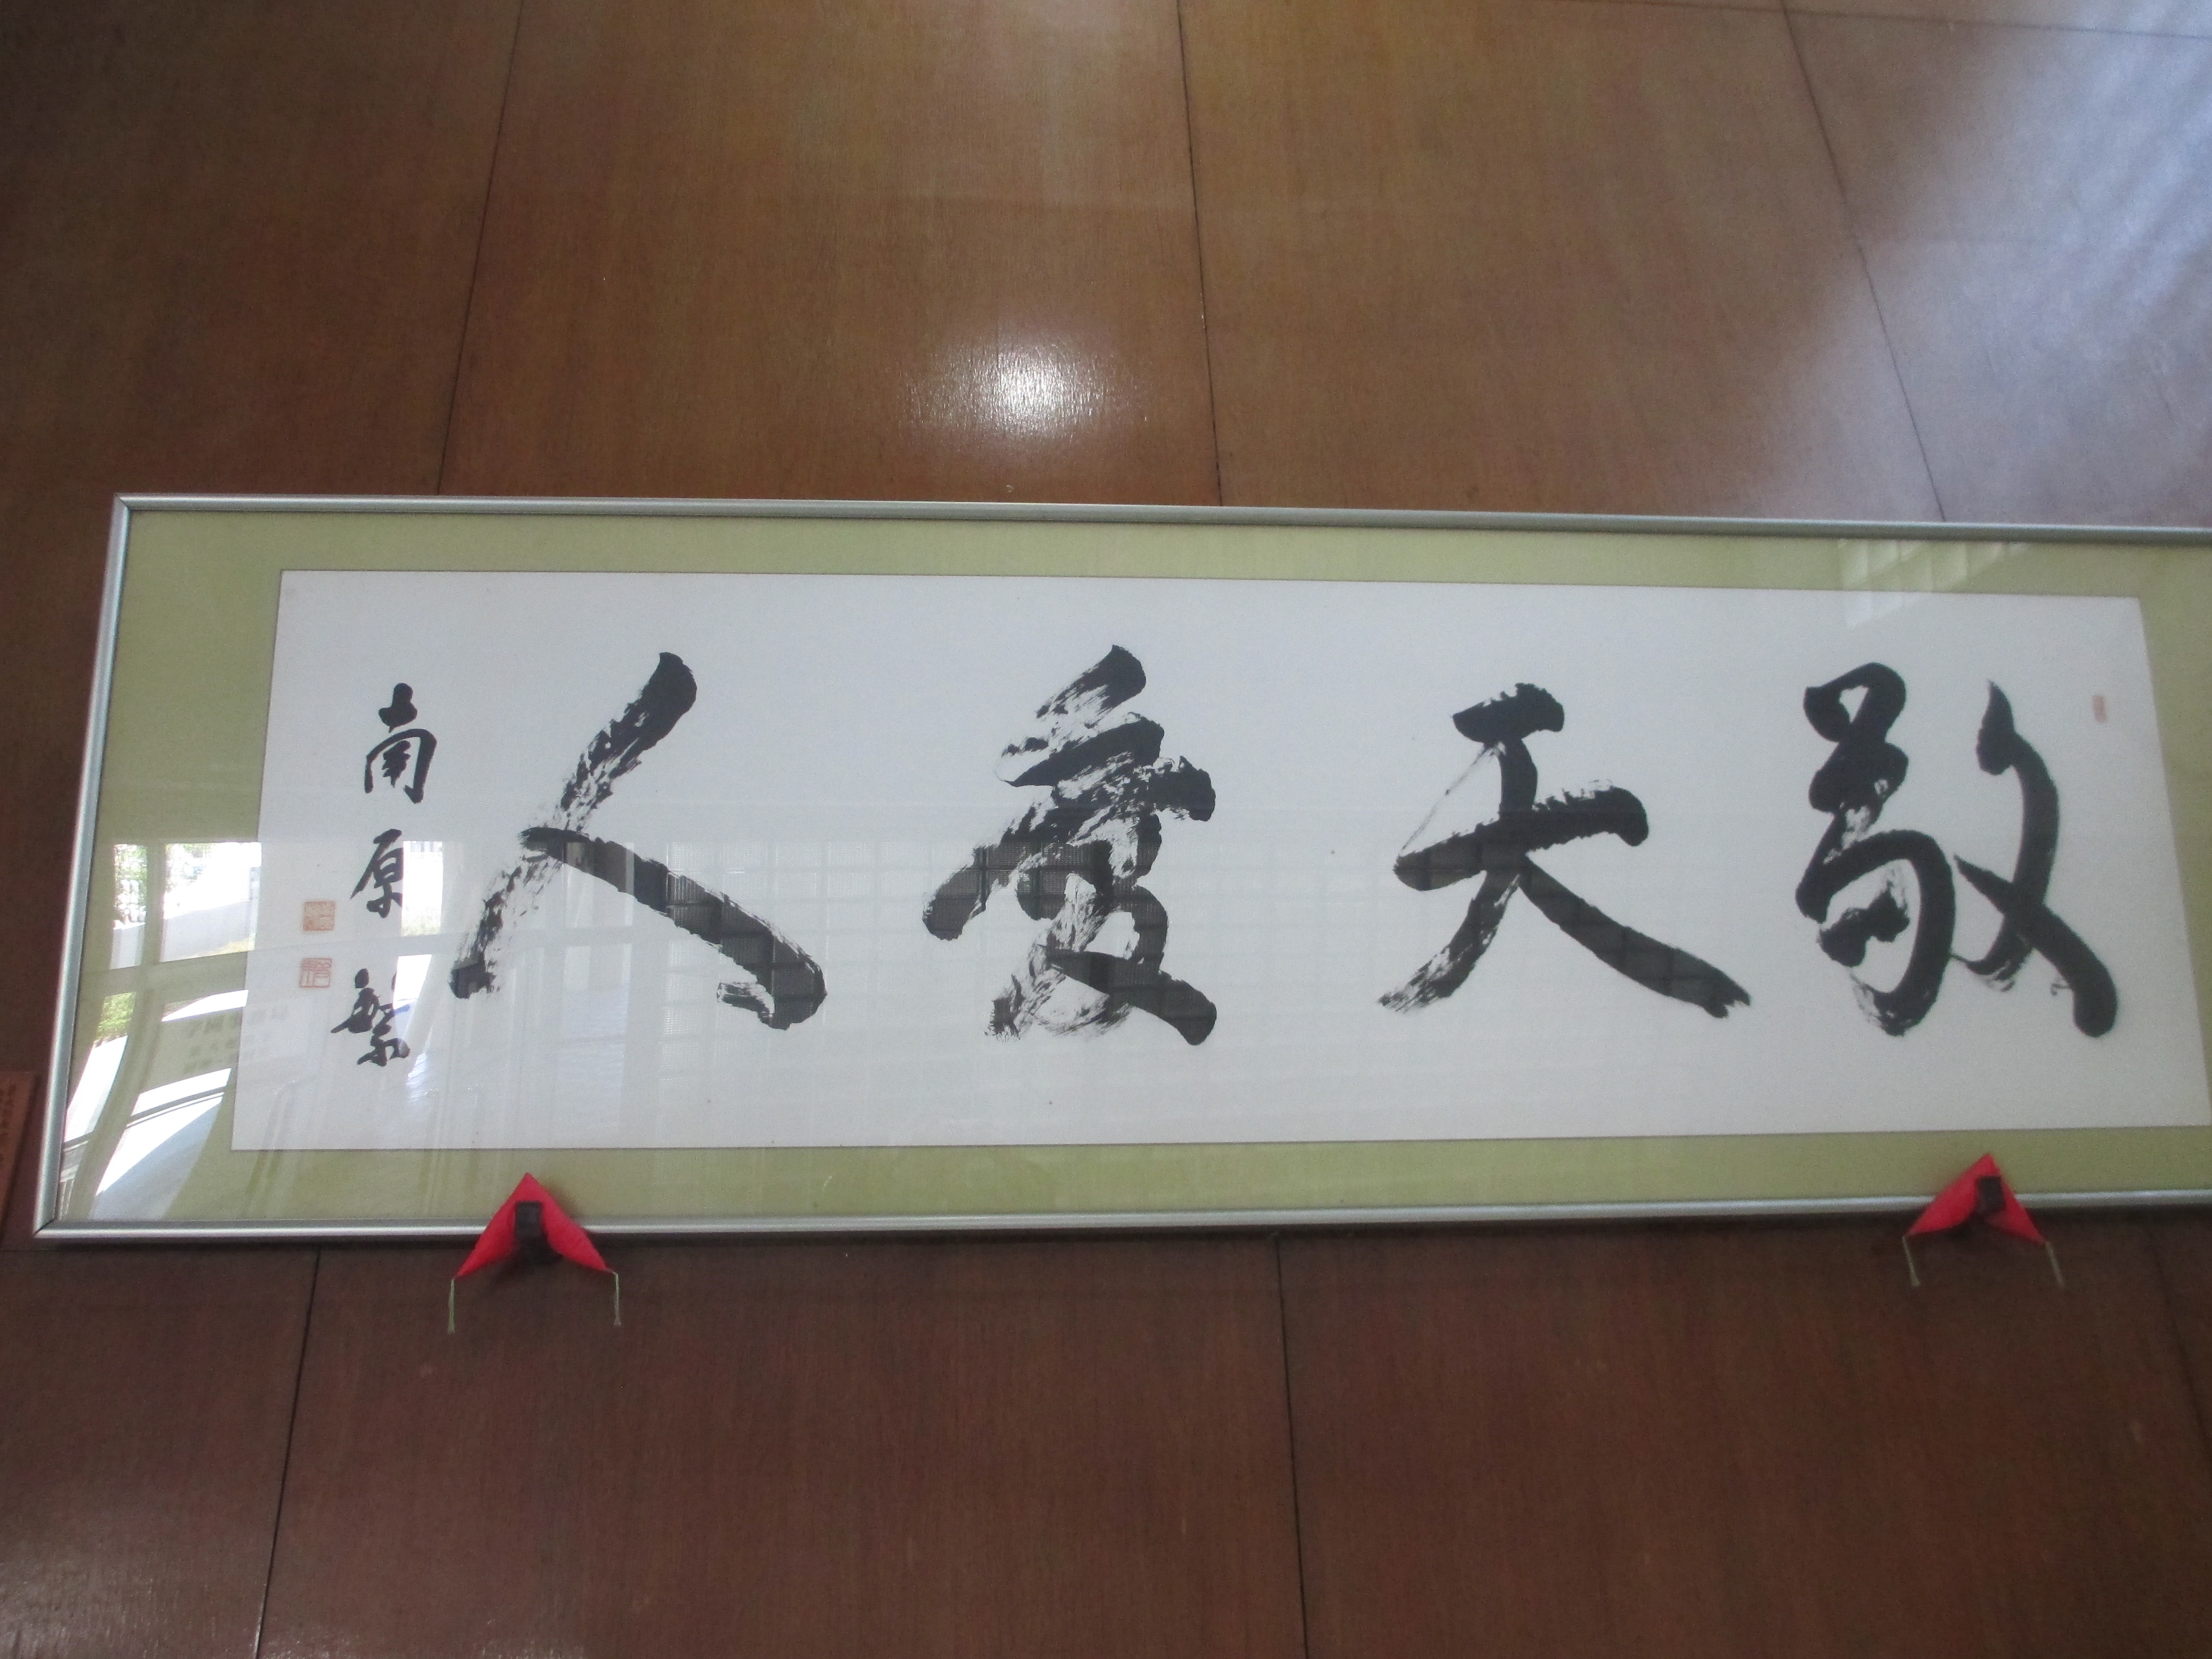 敬天愛人
南原繁